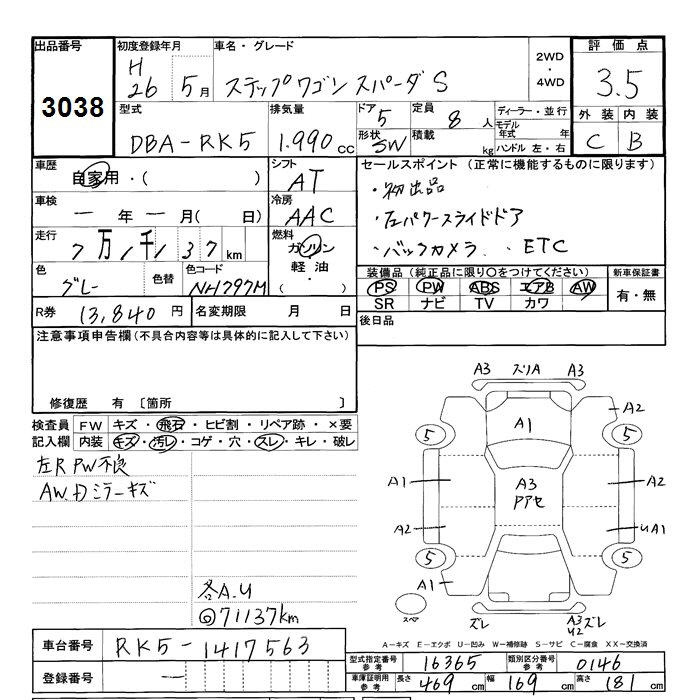 出品番号
3038
初度登録年月
H
26 5月
車名・グレード
ステップワゴン スパーダS
2WD
・
4WD
評価点
3.5
外装 内装
C B
型式
DBA-RK5
排気量
1.990 cc
ドア
5
形状
SW
定員
8 人
積載
kg
ディーラー・並行
モデル
年式 年
ハンドル 左・右
車歴
自家用・( )
シフト
AT
車検
一 年 一 月( 日)
冷房
AAC
走行
7万1千137km
燃料
ガソリン
軽油・
( )
色
グレー
色替
色コード
NH797M
セールスポイント(正常に機能するものに限ります)
・初出品
・左パワースライドドア
・バックカメラ ・ETC
装備品(純正品に限り〇をつけてください)
PS PW ABS エアB AW
SR ナビ TV カワ
新車保証書
有・無
R券
13,840円
名変期限 月 日
後日品
注意事項申告欄(不具合内容等は具体的に記入して下さい)
修復歴 有 〔箇所 〕
検査員
記入欄
FW キズ・飛石・ヒビ割・リペア跡・×要
内装 キズ・汚レ・コゲ・穴・スレ・キレ・破レ
左R PW不良
AW.Dミラーキズ
各A.U
◎71137km
A3 ズリA A3
A2
5 A1 5
A1 A3 A2
アアセ
A2 UA1
5 5
A1
スペア
ズレ A3 ズレ
U2
A-キズ E-エクボ U-凹み W-補修跡 S-サビ C-腐食 XX-交換済
車台番号
RK5-1417563
登録番号
一
型式指定番号
参考
16365
類別区分番号
参考
0146
車庫証明用
参考
長さ 469 cm 幅 169 cm 高さ 181 cm